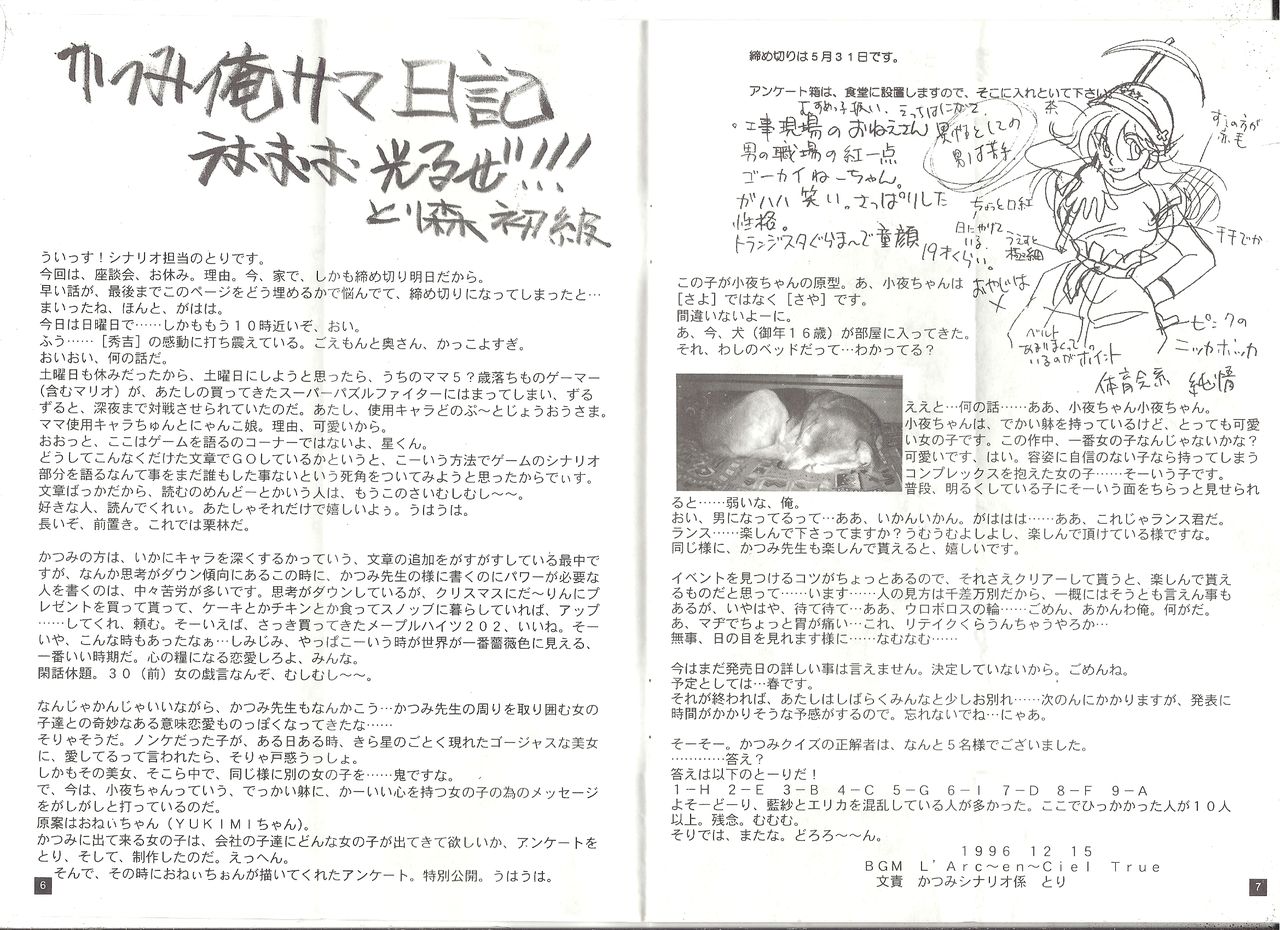 かつみ俺サマ日記
えむむむ 光るぜ!!!!
とり森 初級
ういっす！シナリオ担当のとりです。
今回は、座談会、お休み。理由。今、家で、しかも締め切り明日だから。
早い話が、最後までこのページをどう埋めるかで悩んでて、締め切りになってしまったと…
まいったね、ほんと、がはは。
今日は日曜日で……しかももう１０時近いぞ、おい。
ふう……［秀吉］の感動に打ち震えている。ごえもんと奥さん、かっこよすぎ。
おいおい、何の話だ。
土曜日も休みだったから、土曜日にしようと思ったら、うちのママ５？歳落ちものゲーマー
（含むマリオ）が、あたしの買ってきたスーパーパズルファイターにはまってしまい、ずる
ずると、深夜まで対戦させられていたのだ。あたし、使用キャラどのぶ〜とじょうおうさま。
ママ使用キャラちゅんとにゃんこ娘。理由、可愛いから。
おおっと、ここはゲームを語るのコーナーではないよ、星くん。
どうしてこんなくだけた文章でＧＯしているかというと、こーいう方法でゲームのシナリオ
部分を語るなんて事をまだ誰もした事ないという死角をついてみようと思ったからでぃす。
文章ばっかだから、読むのめんどーとかいう人は、もうこのさいむしむし〜〜。
好きな人、読んでくれぃ。あたしゃそれだけで嬉しいよぅ。うはうは。
長いぞ、前置き。これでは栗林だ。
かつみの方は、いかにキャラを深くするかっていう、文章の追加をがすがすしている最中で
すが、なんか思考がダウン傾向にあるこの時に、かつみ先生の様に書くのにパワーが必要な
人を書くのは、中々苦労が多いです。思考がダウンしているが、クリスマスにだ〜りんにプ
レゼントを買って貰って、ケーキとかチキンとか食ってスノッブに暮らしていれば、アップ
……してくれ、頼む。そーいえば、さっき買ってきたメープルハイツ２０２、いいね。そー
いや、こんな時もあったなぁ…しみじみ、やっぱこーいう時が世界が一番薔薇色に見える、
一番いい時期だ。心の糧になる恋愛しろよ、みんな。
閑話休題。３０（前）女の戯言なんぞ、むしむし〜〜。
なんじゃかんじゃいいながら、かつみ先生もなんかこう…かつみ先生の周りを取り囲む女の
子達との奇妙なある意味恋愛ものっぽくなってきたな……
そりゃそうだ。ノンケだった子が、ある日ある時、きら星のごとく現れたゴージャスな美女
に、愛してるって言われたら、そりゃ戸惑うっしょ。
しかもその美女、そこら中で、同じ様に別の女の子を……鬼ですな。
で、今は、小夜ちゃんっていう、でっかい躰に、かーいい心を持つ女の子の為のメッセージ
をがしがしと打っているのだ。
原案はおねぃちゃん（ＹＵＫＩＭＩちゃん）。
かつみに出て来る女の子は、会社の子達にどんな女の子が出てきて欲しいか、アンケートを
とり、そして、制作したのだ。えっへん。
そんで、その時におねぃちぉんが描いてくれたアンケート。特別公開。うはうは。
6
締め切りは５月３１日です。
アンケート箱は、食堂に設置しますので、そこに入れといて下さい。
むすめっ子扱い、えっちはにがて、
・工事現場のおねえさん
男の職場の紅一点
ゴーカイねーちゃん。
ガハハ笑い。さっぱりした
性格。
トランジスタぐらま〜で童顔
19才くらい。
男やるとしての
男は苦手
茶
すこのうが
赤毛
ちょっと口紅
日にやけて
いる。
うえすと
極細
チチでか
おやじは
×
ベルト
あまりまくって
いるのがポイント
ピンクの
ニッカボッカ
体育会系 純情
この子が小夜ちゃんの原型。あ、小夜ちゃんは
［さよ］ではなく［さや］です。
間違いないよーに。
あ、今、犬（御年１６歳）が部屋に入ってきた。
それ、わしのベッドだって…わかってる？
ええと…何の話……ああ、小夜ちゃん小夜ちゃん。
小夜ちゃんは、でかい躰を持っているけど、とっても可愛
い女の子です。この作中、一番女の子なんじゃないかな？
可愛いです、はい。容姿に自信のない子なら持ってしまう
コンプレックスを抱えた女の子……そーいう子です。
普段、明るくしている子にそーいう面をちらっと見せられ
ると……弱いな、俺。
おい、男になってるって…ああ、いかんいかん。がははは……ああ、これじゃランス君だ。
ランス……楽しんで下さってますか？うむうむよしよし、楽しんで頂けている様ですな。
同じ様に、かつみ先生も楽しんで貰えると、嬉しいです。
イベントを見つけるコツがちょっとあるので、それさえクリアーして貰うと、楽しんで貰え
るものだと思って……います……人の見方は千差万別だから、一概にはそうとも言えん事も
あるが、いやはや、待て待て…ああ、ウロボロスの輪……ごめん、あかんわ俺。何がだ。
あ、マヂでちょっと胃が痛い…これ、リテイクくらうんちゃうやろか…
無事、日の目を見れます様に……なむなむ……
今はまだ発売日の詳しい事は言えません。決定していないから。ごめんね。
予定としては…春です。
それが終われば、あたしはしばらくみんなと少しお別れ……次のんにかかりますが、発表に
時間がかかりそうな予感がするので。忘れないでね…にゃあ。
そーそー。かつみクイズの正解者は、なんと５名様でございました。
…………答え？
答えは以下のとーりだ！
１−Ｈ　２−Ｅ　３−Ｂ　４−Ｃ　５−Ｇ　６−Ｉ　７−Ｄ　８−Ｆ　９−Ａ
よそーどーり、藍紗とエリカを混乱している人が多かった。ここでひっかかった人が１０人
以上。残念。むむむ。
そりでは、またな。どろろ〜〜ん。
１９９６　１２　１５
ＢＧＭ　Ｌ’Ａｒｃ〜ｅｎ〜Ｃｉｅｌ　Ｔｒｕｅ
文責　かつみシナリオ係　とり
7